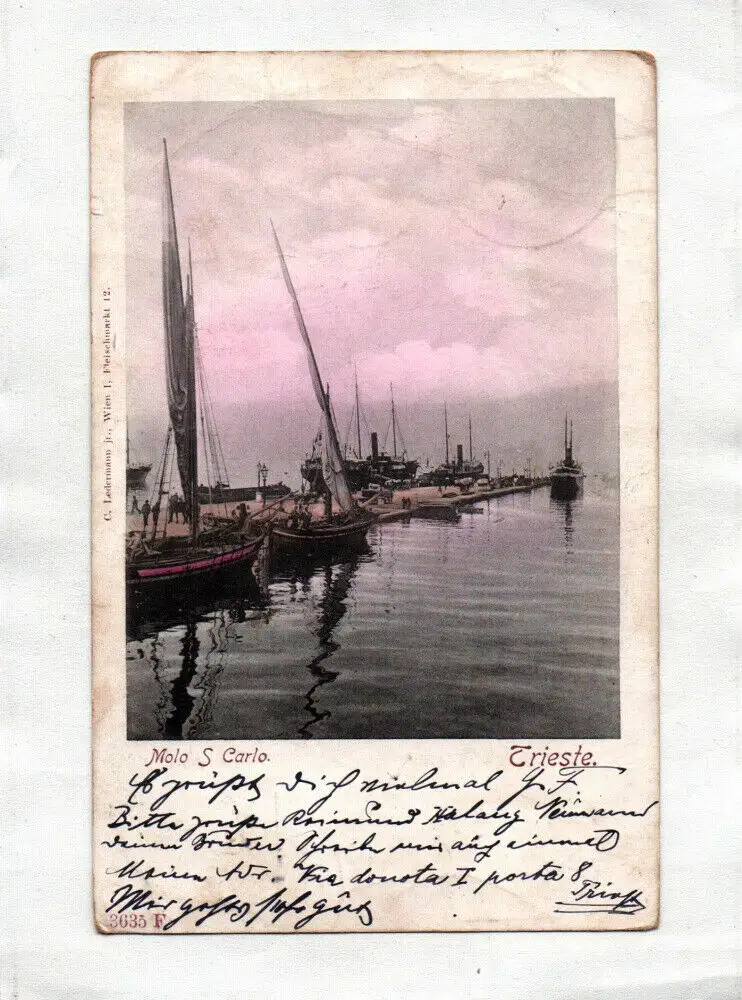 C. Ledermann jr., Wien I, Fleischmarkt 12.
Molo S Carlo.
Trieste.
Es grüßt Dich vielmal G. F.
Bitte grüße Raimund Kalang
deinen Bruder Schreibe mir auch einmal
Meine Adr. Via donota I porta 8
Triest
Mir geht es sehr gut
3635 F